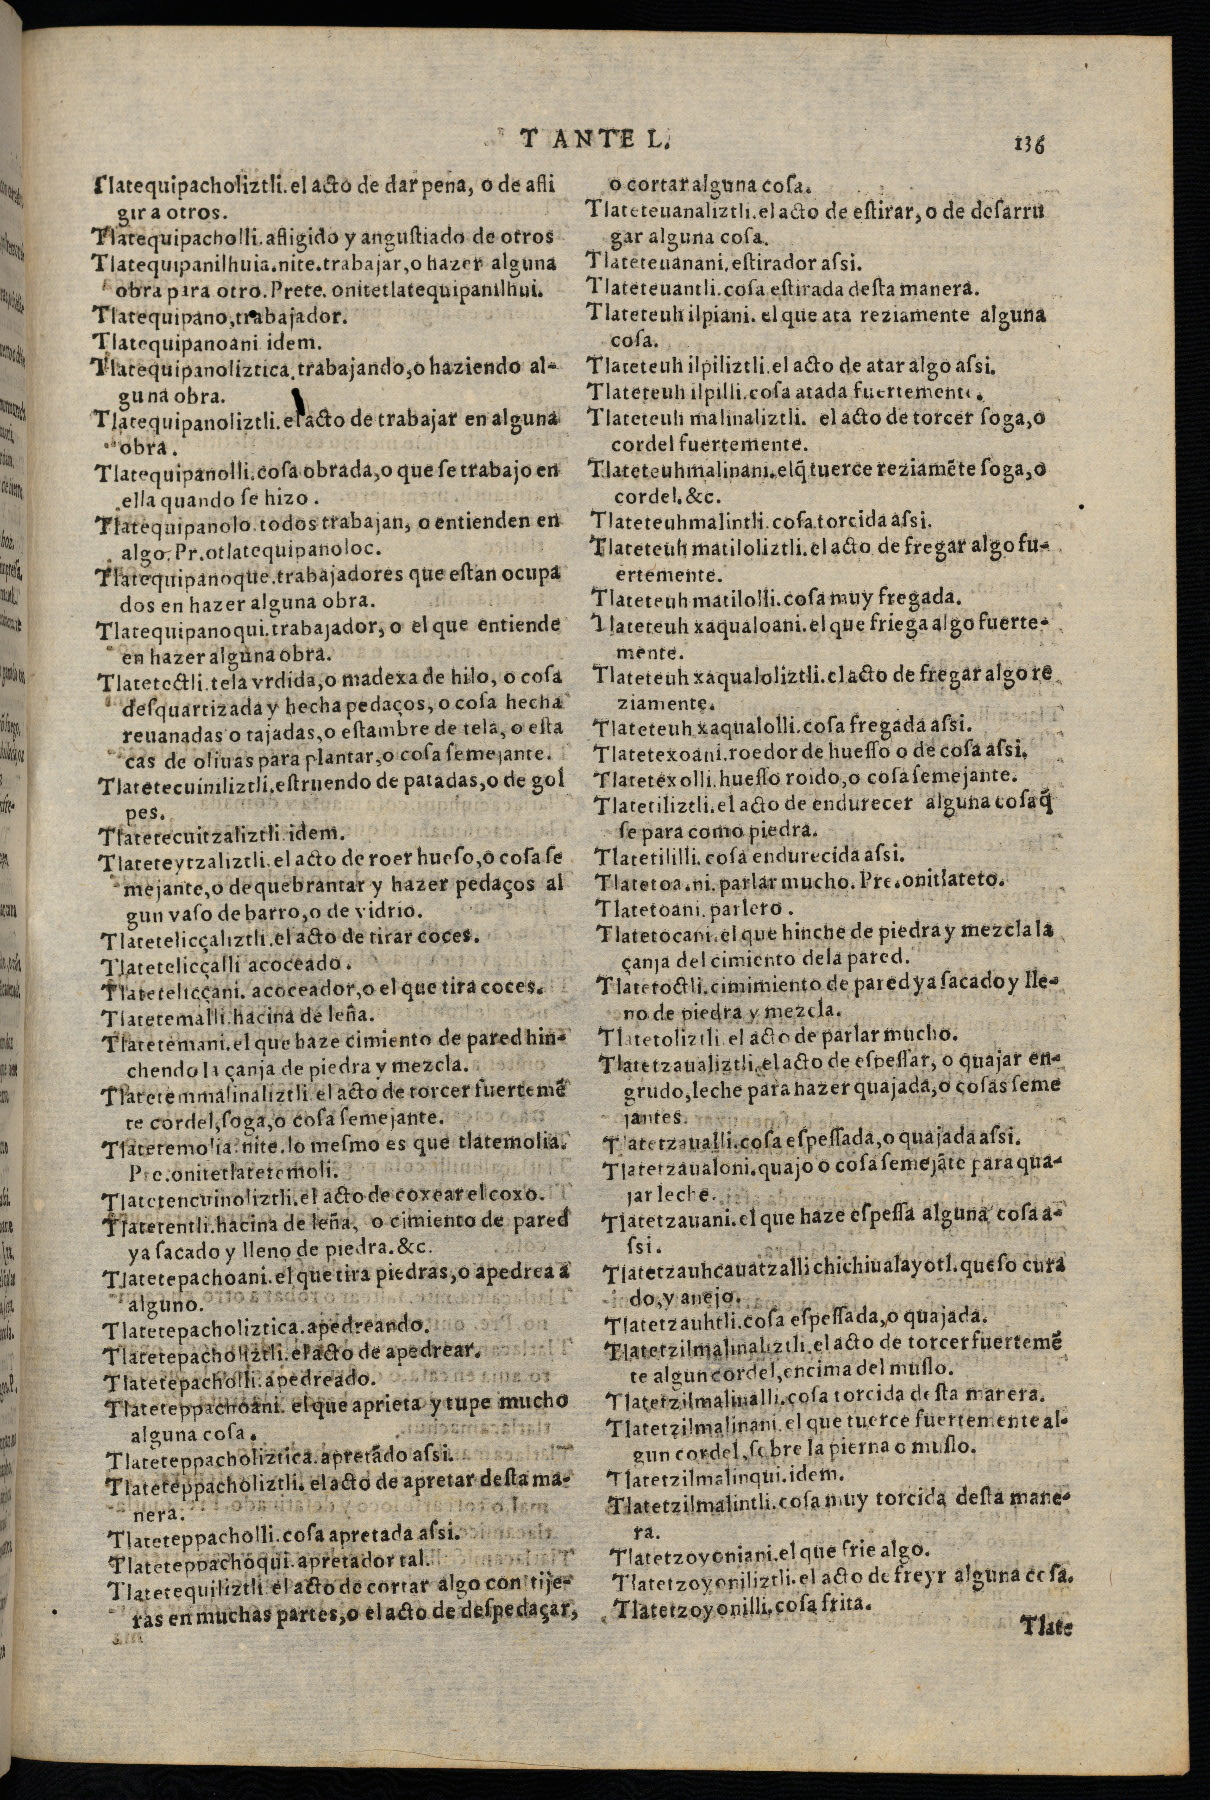 T ANTE L.
136
Tlatequipacholiztli. el acto de dar pena, o de afli
gir a otros.
Tlatequipacholli. afligido y angustiado de otros
Tlatequipanilhuia. nite. trabajar, o hazer alguna
obra para otro. Prete. onitetlatequipanilhui.
Tlatequipano, trabajador.
Tlatequipanoani idem.
Tlatequipanoliztica. trabajando, o haziendo al-
guna obra.
Tlatequipanoliztli. el acto de trabajar en alguna
obra.
Tlatequipanolli. cosa obrada, o que se trabajo en
ella quando se hizo.
Tlatequipanolo. todos trabajan, o entienden en
algo. Pr. otlatequipanoloc.
Tlatequipanoque. trabajadores que estan ocupa
dos en hazer alguna obra.
Tlatequipanoqui. trabajador, o el que entiende
en hazer alguna obra.
Tlatetectli. tela vrdida, o madexa de hilo, o cosa
desquartizada y hecha pedaços, o cosa hecha
reuanadas o tajadas, o estambre de tela, o esta
cas de oliuas para plantar, o cosa semejante.
Tlatetecuiniliztli. estruendo de patadas, o de gol
pes.
Tlatetecuitzaliztli. idem.
Tlateteytzaliztli. el acto de roer hueso, o cosa se
mejante, o de quebrantar y hazer pedaços al
gun vaso de barro, o de vidrio.
Tlatetelicçaliztli. el acto de tirar coces.
Tlatetelicçalli acoceado.
Tlatetelicçani. acoceador, o el que tira coces.
Tlatetemalli. hacina de leña.
Tlatetemani. el que haze cimiento de pared hin-
chendo la çanja de piedra y mezcla.
Tlatetemmalinaliztli. el acto de torcer fuertemẽ
te cordel, soga, o cosa semejante.
Tlatetemolia. nite. lo mesmo es que tlatemolia.
Pre. onitetlatetemoli.
Tlatetencuinoliztli. el acto de coxear el coxo.
Tlatetentli. hacina de leña, o cimiento de pared
ya sacado y lleno de piedra. &c.
Tlatetepachoani. el que tira piedras, o apedrea a
alguno.
Tlatetepacholiztica. apedreando.
Tlatetepacholiztli. el acto de apedrear.
Tlatetepacholli. apedreado.
Tlateteppachoani. el que aprieta y tupe mucho
alguna cosa.
Tlateteppacholiztica. apretãdo assi.
Tlateteppacholiztli. el acto de apretar desta ma-
nera.
Tlateteppacholli. cosa apretada assi.
Tlateteppachoqui. apretador tal.
Tlatetequiliztli el acto de cortar algo con tije-
ras en muchas partes, o el acto de despedaçar,
o cortar alguna cosa.
Tlateteuanaliztli. el acto de estirar, o de desarru
gar alguna cosa.
Tlateteuanani. estirador assi.
Tlateteuantli. cosa estirada desta manera.
Tlateteuh ilpiani. el que ata reziamente alguna
cosa.
Tlateteuh ilpiliztli. el acto de atar algo assi.
Tlateteuh ilpilli. cosa atada fuertemente.
Tlateteuh malinaliztli. el acto de torcer soga, o
cordel fuertemente.
Tlateteuhmalinani. el q̃ tuerce reziamẽte soga, o
cordel. &c.
Tlateteuhmalintli. cosa torcida assi.
Tlateteuh matiloliztli. el acto de fregar algo fu-
ertemente.
Tlateteuh matilolli. cosa muy fregada.
Tlateteuh xaqualoani. el que friega algo fuerte-
mente.
Tlateteuh xaqualoliztli. el acto de fregar algo re
ziamente.
Tlateteuh xaqualolli. cosa fregada assi.
Tlatetexoani. roedor de huesso o de cosa assi.
Tlatetexolli. huesso roido, o cosa semejante.
Tlatetiliztli. el acto de endurecer alguna cosa q̃
se para como piedra.
Tlatetililli. cosa endurecida assi.
Tlatetoa. ni. parlar mucho. Pre. onitlateto.
Tlatetoani. parlero.
Tlatetocani. el que hinche de piedra y mezcla la
çanja del cimiento dela pared.
Tlatetoctli. cimimiento de pared ya sacado y lle-
no de piedra y mezcla.
Tlatetoliztli. el acto de parlar mucho.
Tlatetzaualiztli. el acto de espessar, o quajar en-
grudo, leche para hazer quajada, o cosas seme
jantes.
Tlatetzaualli. cosa espessada, o quajada assi.
Tlatetzaualoni. quajo o cosa semejãte para qua-
jar leche.
Tlatetzauani. el que haze espessa alguna cosa a-
ssi.
Tlatetzauhcauatzalli chichiualayotl. queso cura
do, y anejo.
Tlatetzauhtli. cosa espessada, o quajada.
Tlatetzilmalinaliztli. el acto de torcer fuertemẽ
te algun cordel, encima del muslo.
Tlatetzilmalinalli. cosa torcida desta manera.
Tlatetzilmalinani. el que tuerce fuertemente al-
gun cordel, sobre la pierna o muslo.
Tlatetzilmalinqui. idem.
Tlatetzilmalintli. cosa muy torcida desta mane-
ra.
Tlatetzoyoniani. el que frie algo.
Tlatetzoyoniliztli. el acto de freyr alguna cosa.
Tlatetzoyonilli. cosa frita.
Tlate